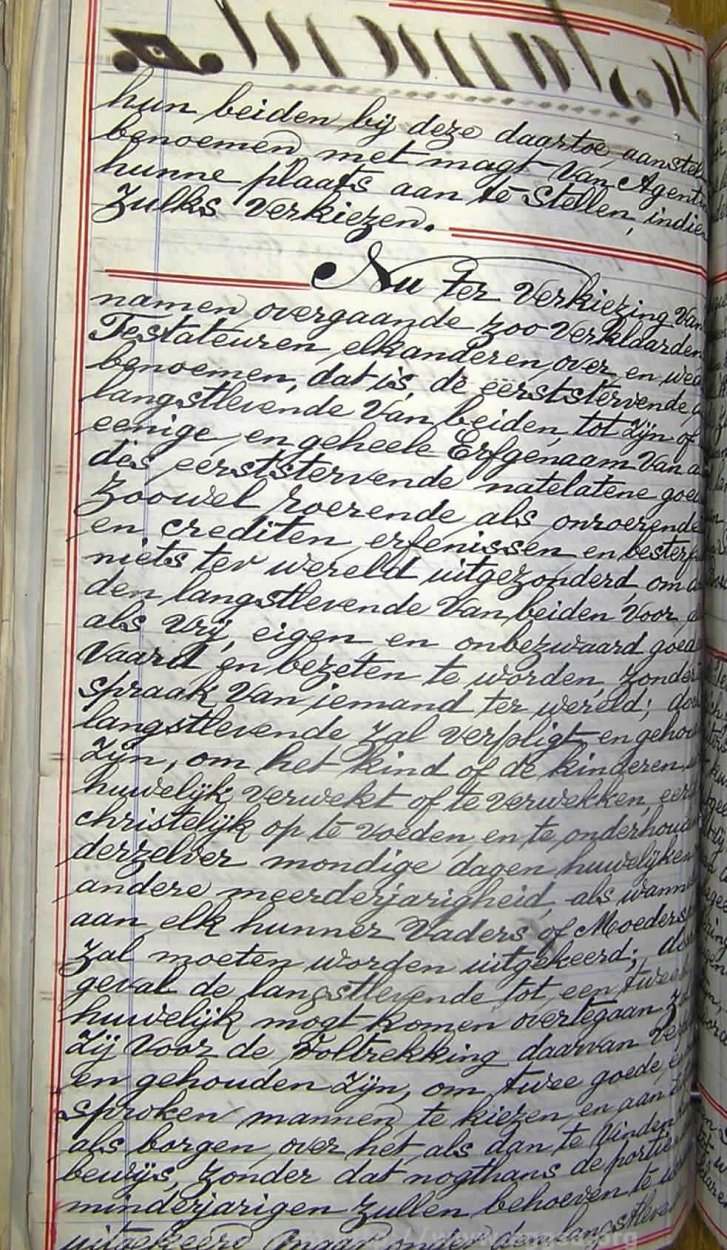 hun beiden bij deze daartoe aanstel
benoemen, met magt van Agent
hunne plaats aan te stellen, indie
zulks verkiezen.
Nu ter verkiezing van
namen overgaande zoo verklaarden
Testateuren elkanderen over en wed
benoemen, dat is, de eerststervende d
langstlevende van beiden, tot zijn of
eenige en geheele Erfgenaam van a
des eerststervende natelatene goed
zoowel roerende als onroerende
en crediten, erfenissen en besterf
niets ter wereld uitgezonderd, om d
den langstlevende van beiden voor, a
als vrij, eigen en onbezwaard goed
vaard en bezeten te worden, zonder
spraak van iemand ter wereld; do
langstlevende zal verpligt en gehou
zijn, om het kind of de kinderen
huwelijk verwekt of te verwekken, eer
christelijk op te voeden, en te onderhoud
derzelver mondige dagen, huwelijken
andere meerderjarigheid, als wanne
aan elk hunner Vaders of Moeders
zal moeten worden uitgekeerd;
geval de langstlevende tot een tweed
huwelijk mogt komen overtegaan, z
zij voor de voltrekking daarvan ver
en gehouden zijn, om twee goede, en
sproken mannen te kiezen, en aan te
als borgen over het als dan te vinden
bewijs, zonder dat nogthans de portie
minderjarigen zullen behoeven te w
uitgekeerd, maar onder den langstleve